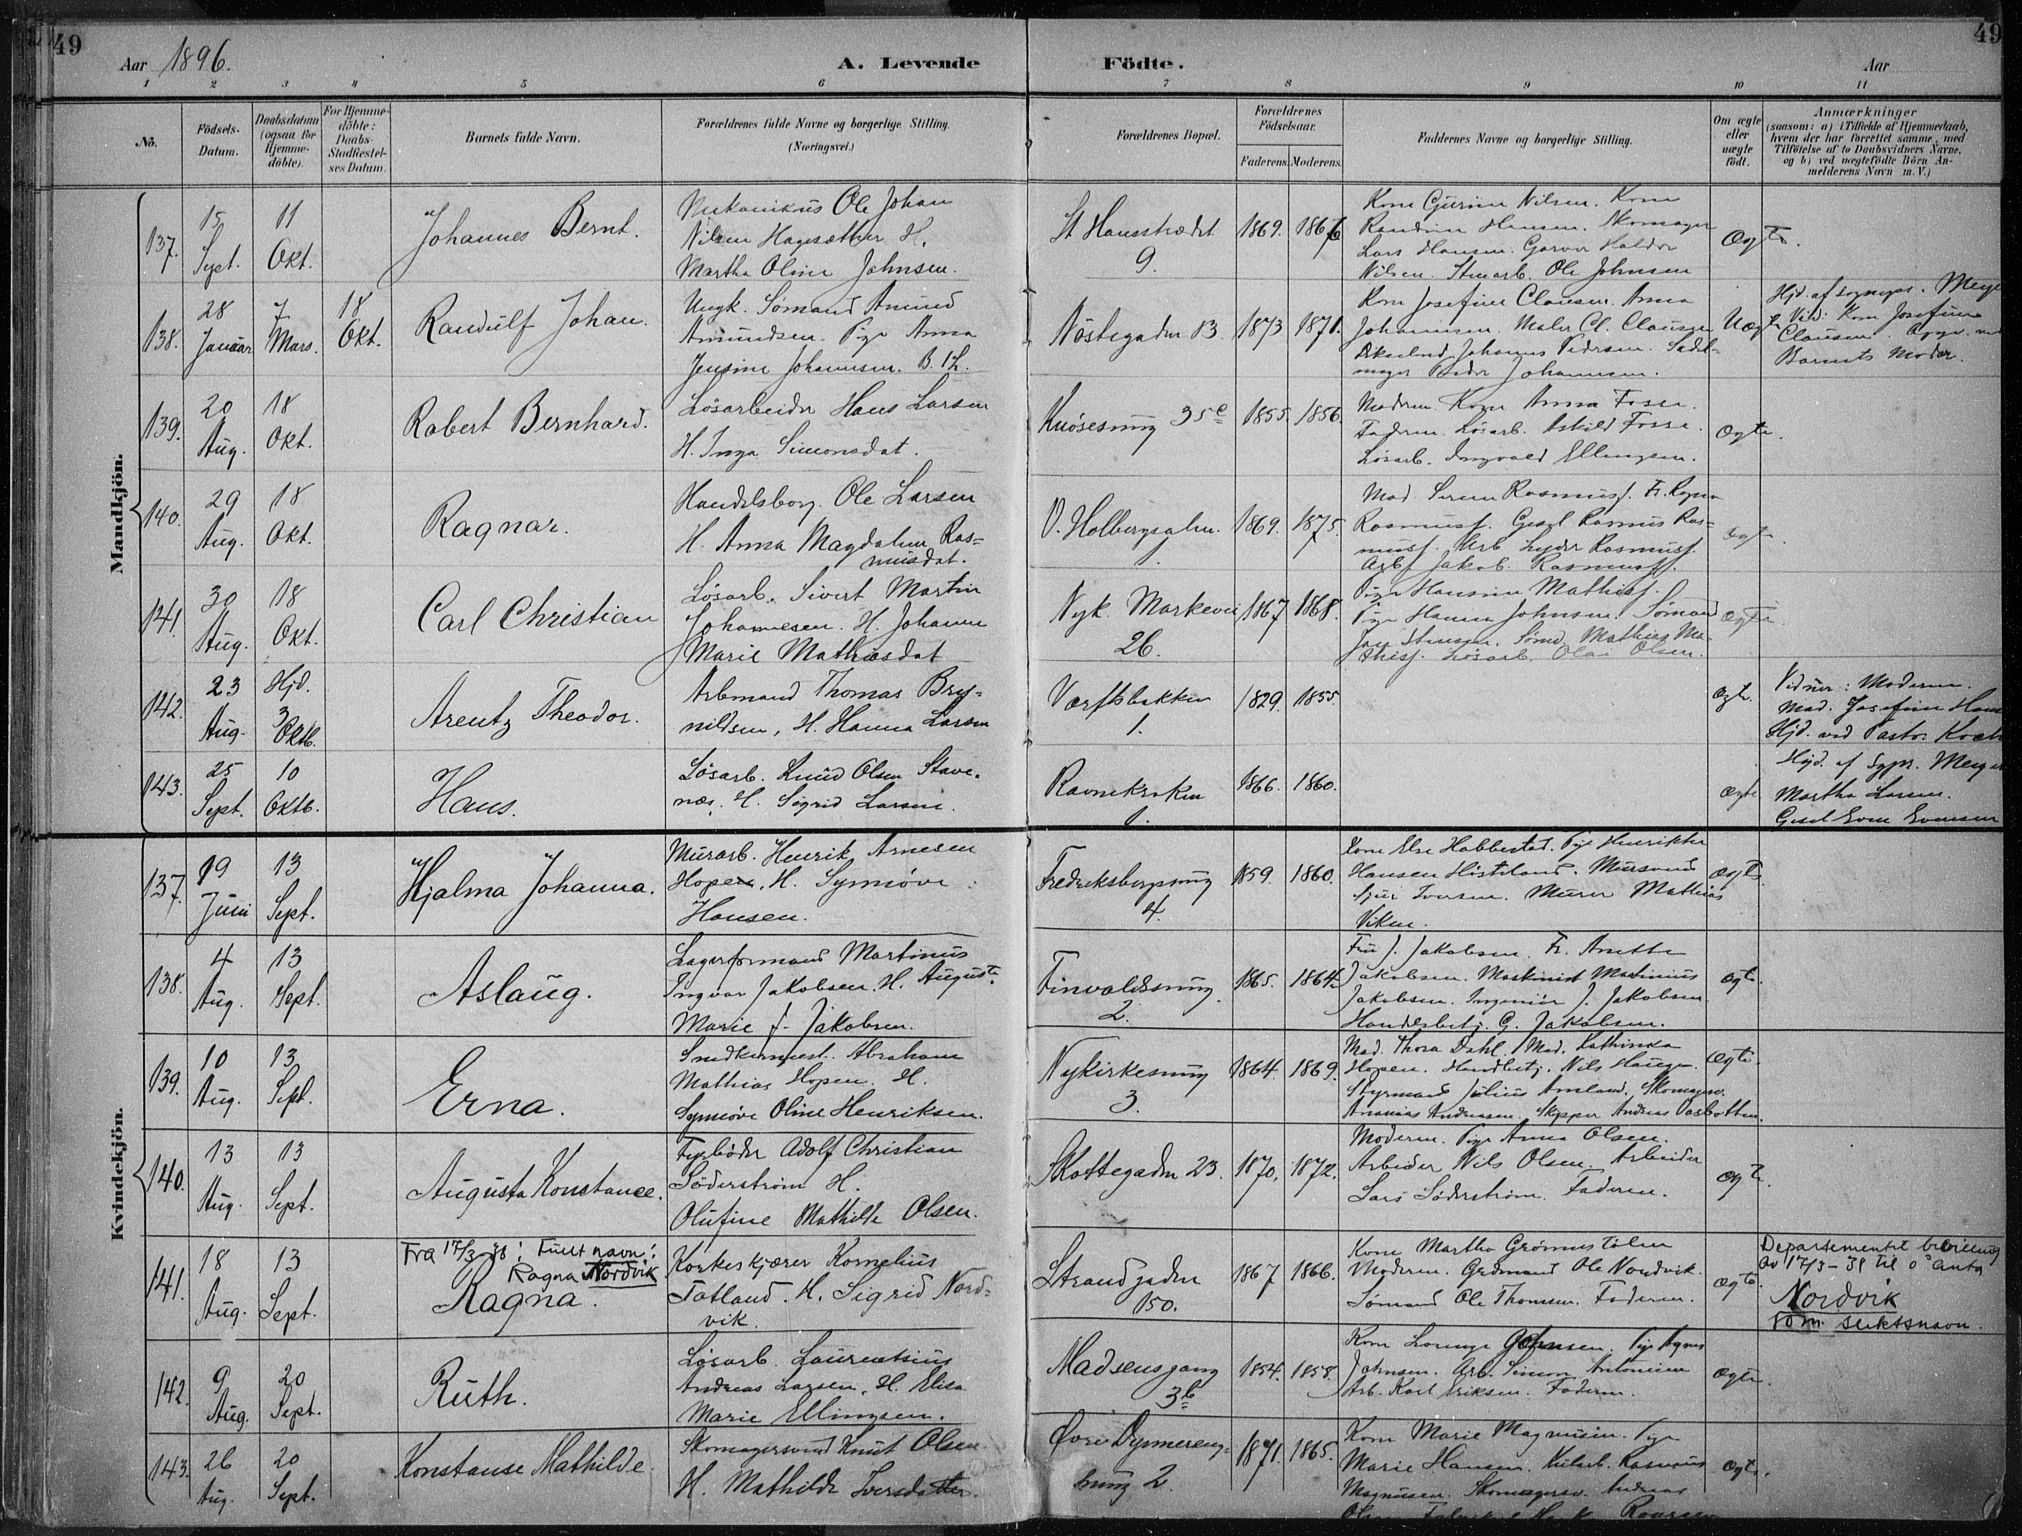 49
49
Aar 1896.
A. Levende
Födte.
Aar
1 2 3 4 5 6 7 8 9 10 11
No.
Födsels-
Datum.
Daabsdatum
(ogsaa for
Hjemme-
döbte).
For Hjemme-
döbte:
Daabs-
Stadfæstel-
ses Datum.
Barnets fulde Navn.
Forældrenes fulde Navne og borgerlige Stilling.
(Næringsvei.)
Forældrenes Bopæl.
Forældrenes
Födselsaar.
Faderens. Moderens.
Faddernes Navne og borgerlige Stilling.
Om ægte
eller
uægte
födt.
Anmærkninger
(saasom: a) i Tilfælde af Hjemmedaab,
hvem der har forrettet samme, med
Tilföielse af to Daabsvidners Navne,
og b) ved uægtefödte Börn An-
melderens Navn m. V.)
Mandkjön.
137. 15 Sept. 11 Okt.
Johannes Bernt.
Mekanikus Ole Johan
Nilsen Hagesæther H.
Martha Oline Johnsen.
St Hansstrædet
9.
1869. 1867
Kone Gurine Nilsen. Kone
Randine Hansen. Skomager
Lars Hansen. Garver Haldor
Nilsen. Stenarb. Ole Johnsen
Ægte.
138. 28 Januar 7 Mars. 18 Okt.
Randulf Johan.
Ungk. Sømand Amund
Amundsen. Pige Anna
Jensine Johannesen. B. 1ste L.
Nøstegaden 13.
1873 1871.
Kone Josefine Clausen. Anna
Johannesen. Maler Cl. Clausen
Johannes Pedersen. Sadel-
mager Peder Johannesen.
Uægte
Hjd. af sognepr. Meyer
Vid: Kone Josefine
Clausen.
Barnets Moder.
139. 20 Aug. 18 Okt.
Robert Bernhard.
Løsarbeider Hans Larsen
H. Inga Simonsdat.
Knøsesmug 35c
1855. 1856.
Moderen. Kone Anna Fosse.
Faderen. Løsarb. Askild Fosse.
Løsarb. Ingvald Ellingsen.
Ægte.
140. 29 Aug. 18 Okt.
Ragnar.
Handelsborg. Ole Larsen
H. Anna Magdalene Ras-
musdat.
V. Holbergsalm.
1.
1869. 1875.
Mad. Serine Rasmuss. Fr. Ragna
Rasmuss. Gesel Rasmus Ras-
muss. Arb Lyder Rasmuss.
Arb Jakob Rasmuss.
ægte.
141. 30 Aug. 18 Okt.
Carl Christian
Løsarb. Sivert Martin
Johannesen. H. Johanne
Marie Mathiasdat
Nyk. Markevei
26.
1867 1868.
Pige Hansine Mathiss.
Pige Hanna Johnsen. Sømand
Stensen. Sømd. Mathias Ma-
thiss. Løsarb. Olai Olsen.
Ægte.
142. 23 Aug. Hjd. 3 Oktb.
Arentz Theodor.
Arbmand Thomas Bry-
nildsen, H. Hanna Larsen
Værftsbakken
1.
1829. 1855.
ægte.
Vidner: Moderen.
Mad. Josefine
Hjd. ved Pastor
143. 25 Sept. 10 Oktb.
Hans.
Løsarb. Knud Olsen Stave-
næs. H. Sigrid Larsen.
Ravnekroken
1.
1866. 1860.
ægte
Hjd. af Sgpr. Meyer
Martha Larsen.
Gesel Even Evensen
Kvindekjön.
137. 19 Juni 13 Sept.
Hjalma Johanna.
Murarb. Henrik Arnesen
Hopen, H. Synnøve
Hansen.
Fredriksbergsmug
4.
1859. 1860.
Kone Else Habbestad. Pige Henrikke
Hansen. Mursvend
Sjur Iversen. Murer Mathias
Viken.
ægte.
138. 4 Aug. 13 Sept.
Aslaug.
Lagerformand Martinus
Ingvar Jakobsen. H. Auguste
Marie f. Jakobsen.
Finvaldsmug
2.
1865. 1864.
Fru J. Jakobsen. Fr. Anette
Jakobsen. Maskinist Martinius
Jakobsen. Ingeniør J. Jakobsen
Handelsbetj. G. Jakobsen.
ægte.
139. 10 Aug. 13 Sept.
Erna.
Snedkermest. Abraham
Mathias Hopen. H.
Synnøve Oline Henriksen.
Nykirkesmug
3.
1864. 1869.
Mad. Thora Dahl. Mad. Kathinka
Hopen. Handbetj. Nils Haugen.
Styrmand Julius Amland. Skomagersv.
Ananias Andreasen. Skipper Andreas Vasbotten.
Ægte.
140. 13 Aug. 13 Sept.
Augusta Konstance.
Fyrbøder Adolf Christian
Söderstrøm H.
Olufine Mathilde Olsen.
Skottegaden 23.
1870. 1872.
Moderen. Pige Anna Olsen.
Arbeider Nils Olsen. Arbeider
Lars Söderstrøm. Faderen.
ægte.
141. 18 Aug. 13 Sept.
Fra 17/3 38: Fullt navn:
Ragna Nordvik
Ragna.
Korkeskjærer Kornelius
Totland. H. Sigrid Nord-
vik.
Strandgaden
150.
1867 1866.
Kone Martha Grönnestølen
Moderen. Grdmand Ole Nordvik.
Sømand Ole Thomsen. Faderen.
ægte.
Departementet bevilling
av 17/3-38 til å anta
Nordvik
som slektsnavn.
142. 9 Aug. 20 Sept.
Ruth.
Løsarb. Laurentsius
Andreas Larsen, H. Elisa
Marie Ellingsen.
Madsensgang
3b
1854. 1858.
Kone Johnsen. Pige Agnes
Johnsen. Arb. Simon Antonsen
Arb. Karl Eriksen. Faderen.
ægte.
143. 26 Aug. 20 Sept.
Konstanse Mathilde.
Skomagersvend Knut Olsen
H. Mathilde Iversdatter.
Øvre Dyvmereng-
smug 2.
1871. 1865.
Kone Marie Magnusen. Pige
Marie Hansen. Rasmus
Magnusen. Skomagersv. Andreas
Olsen.
ægte.